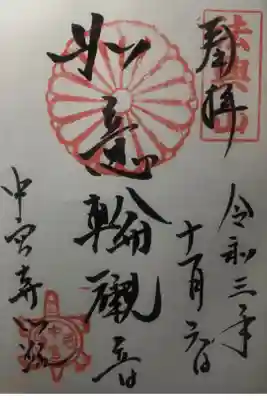 奉拝
法興山
令和三年
十一月六日
如意輪観音
中宮寺